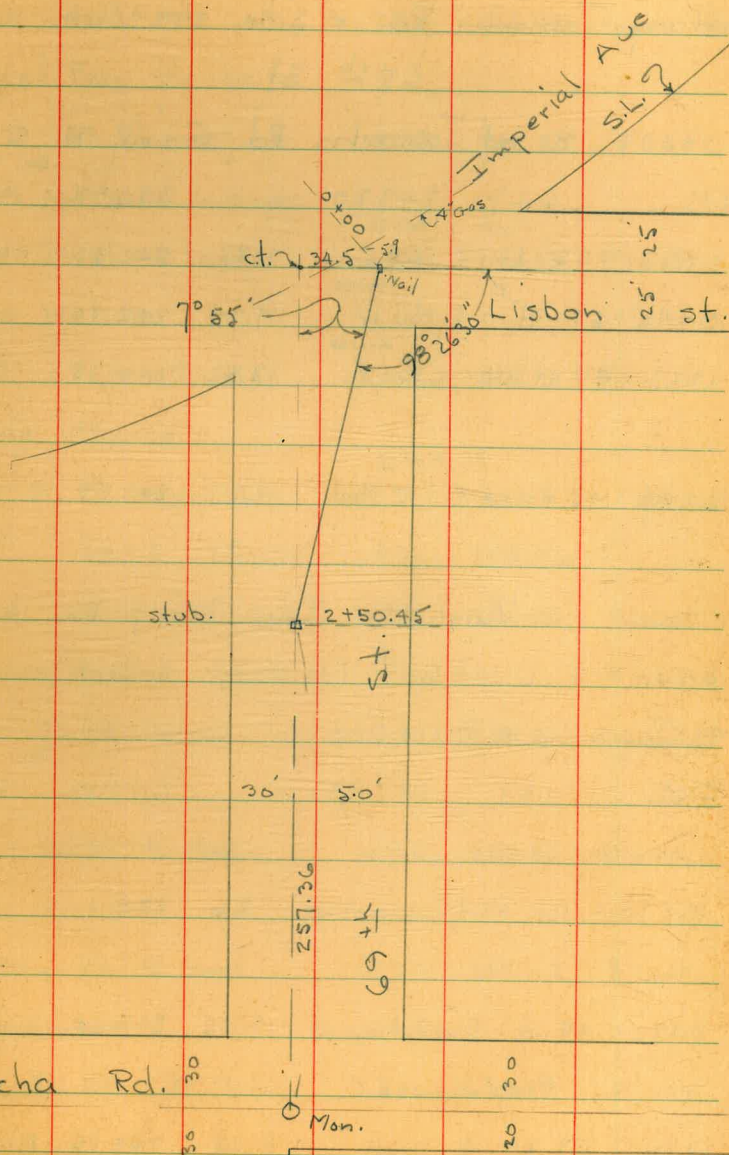 Imperial Ave
S.L.?
0+00
4" Gas
5.9
ct. 34.5
Nail
25'
7° 55'
98° 26' 30"
Lisbon st.
25'
stub.
2+50.45
St.
30' 50'
257.36
69 th
cha Rd.
30
30
Mon.
30
20